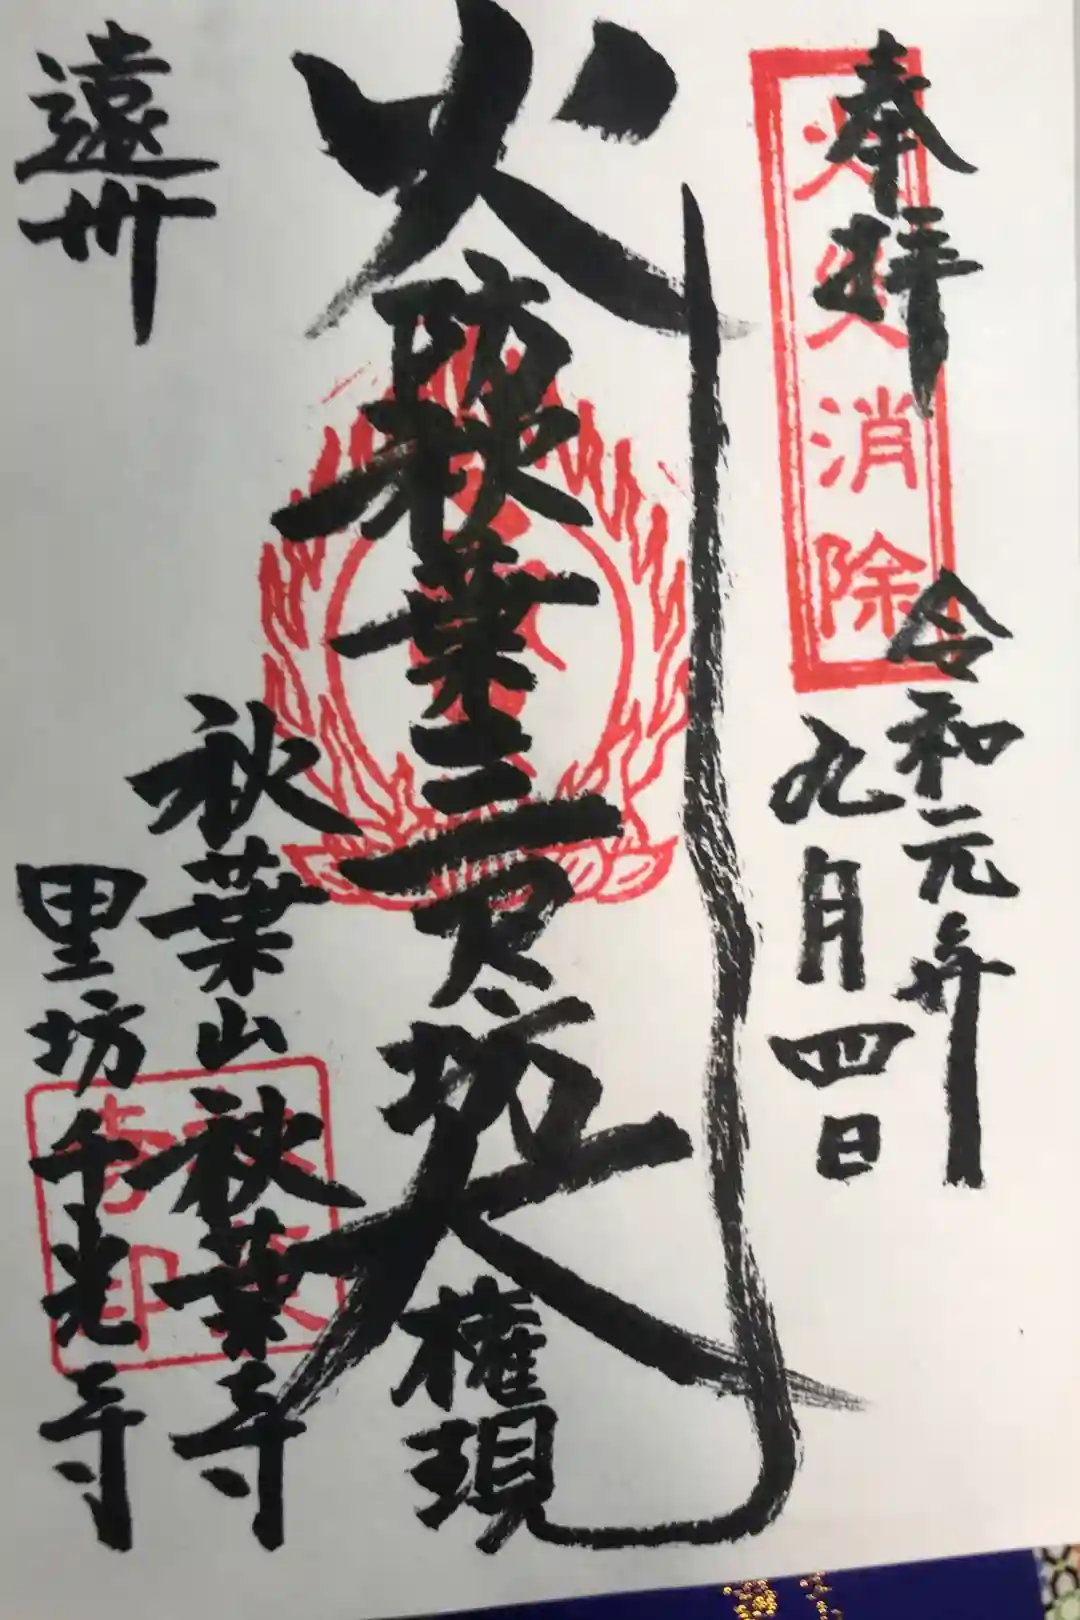 奉拝
火災消除
令和元年
九月四日
火防
秋葉三尺坊大権現
遠州
秋葉山秋葉寺
里坊千光寺